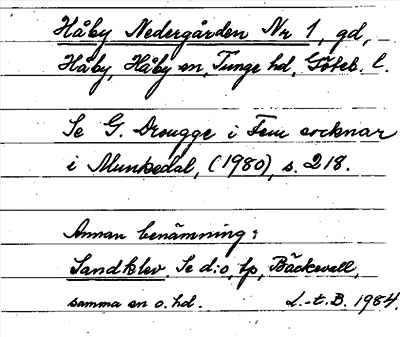 Håby Nedergården Nr 1, gd,
Håby, Håby sn, Tunge hd, Göteb. l.
Se G. Drougge i Fem socknar
i Munkedal, (1980), s. 218.
Annan benämning:
Sandklev. Se d:o, tp, Bäckevall,
samma sn o. hd. L.-t. B. 1984.